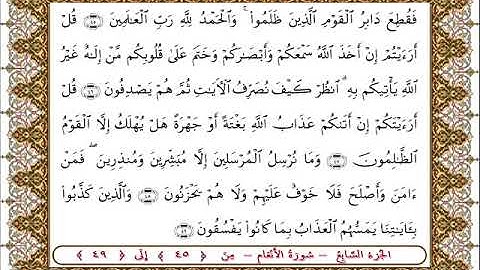 فَقُطِعَ دَابِرُ ٱلْقَوْمِ ٱلَّذِينَ ظَلَمُوا۟ ۚ وَٱلْحَمْدُ لِلَّهِ رَبِّ ٱلْعَـٰلَمِينَ ٤٥ قُلْ
أَرَءَيْتُمْ إِنْ أَخَذَ ٱللَّهُ سَمْعَكُمْ وَأَبْصَـٰرَكُمْ وَخَتَمَ عَلَىٰ قُلُوبِكُم مَّنْ إِلَـٰهٌ غَيْرُ
ٱللَّهِ يَأْتِيكُم بِهِ ۗ ٱنظُرْ كَيْفَ نُصَرِّفُ ٱلْـَٔايَـٰتِ ثُمَّ هُمْ يَصْدِفُونَ ٤٦ قُلْ
أَرَءَيْتَكُمْ إِنْ أَتَىٰكُمْ عَذَابُ ٱللَّهِ بَغْتَةً أَوْ جَهْرَةً هَلْ يُهْلَكُ إِلَّا ٱلْقَوْمُ
ٱلظَّـٰلِمُونَ ٤٧ وَمَا نُرْسِلُ ٱلْمُرْسَلِينَ إِلَّا مُبَشِّرِينَ وَمُنذِرِينَ ۖ فَمَنْ
ءَامَنَ وَأَصْلَحَ فَلَا خَوْفٌ عَلَيْهِمْ وَلَا هُمْ يَحْزَنُونَ ٤٨ وَٱلَّذِينَ كَذَّبُوا۟
بِـَٔايَـٰتِنَا يَمَسُّهُمُ ٱلْعَذَابُ بِمَا كَانُوا۟ يَفْسُقُونَ ٤٩
الجزء السابع - سورة الأنعام - من ﴿ ٤٥ ﴾ إلى ﴿ ٤٩ ﴾